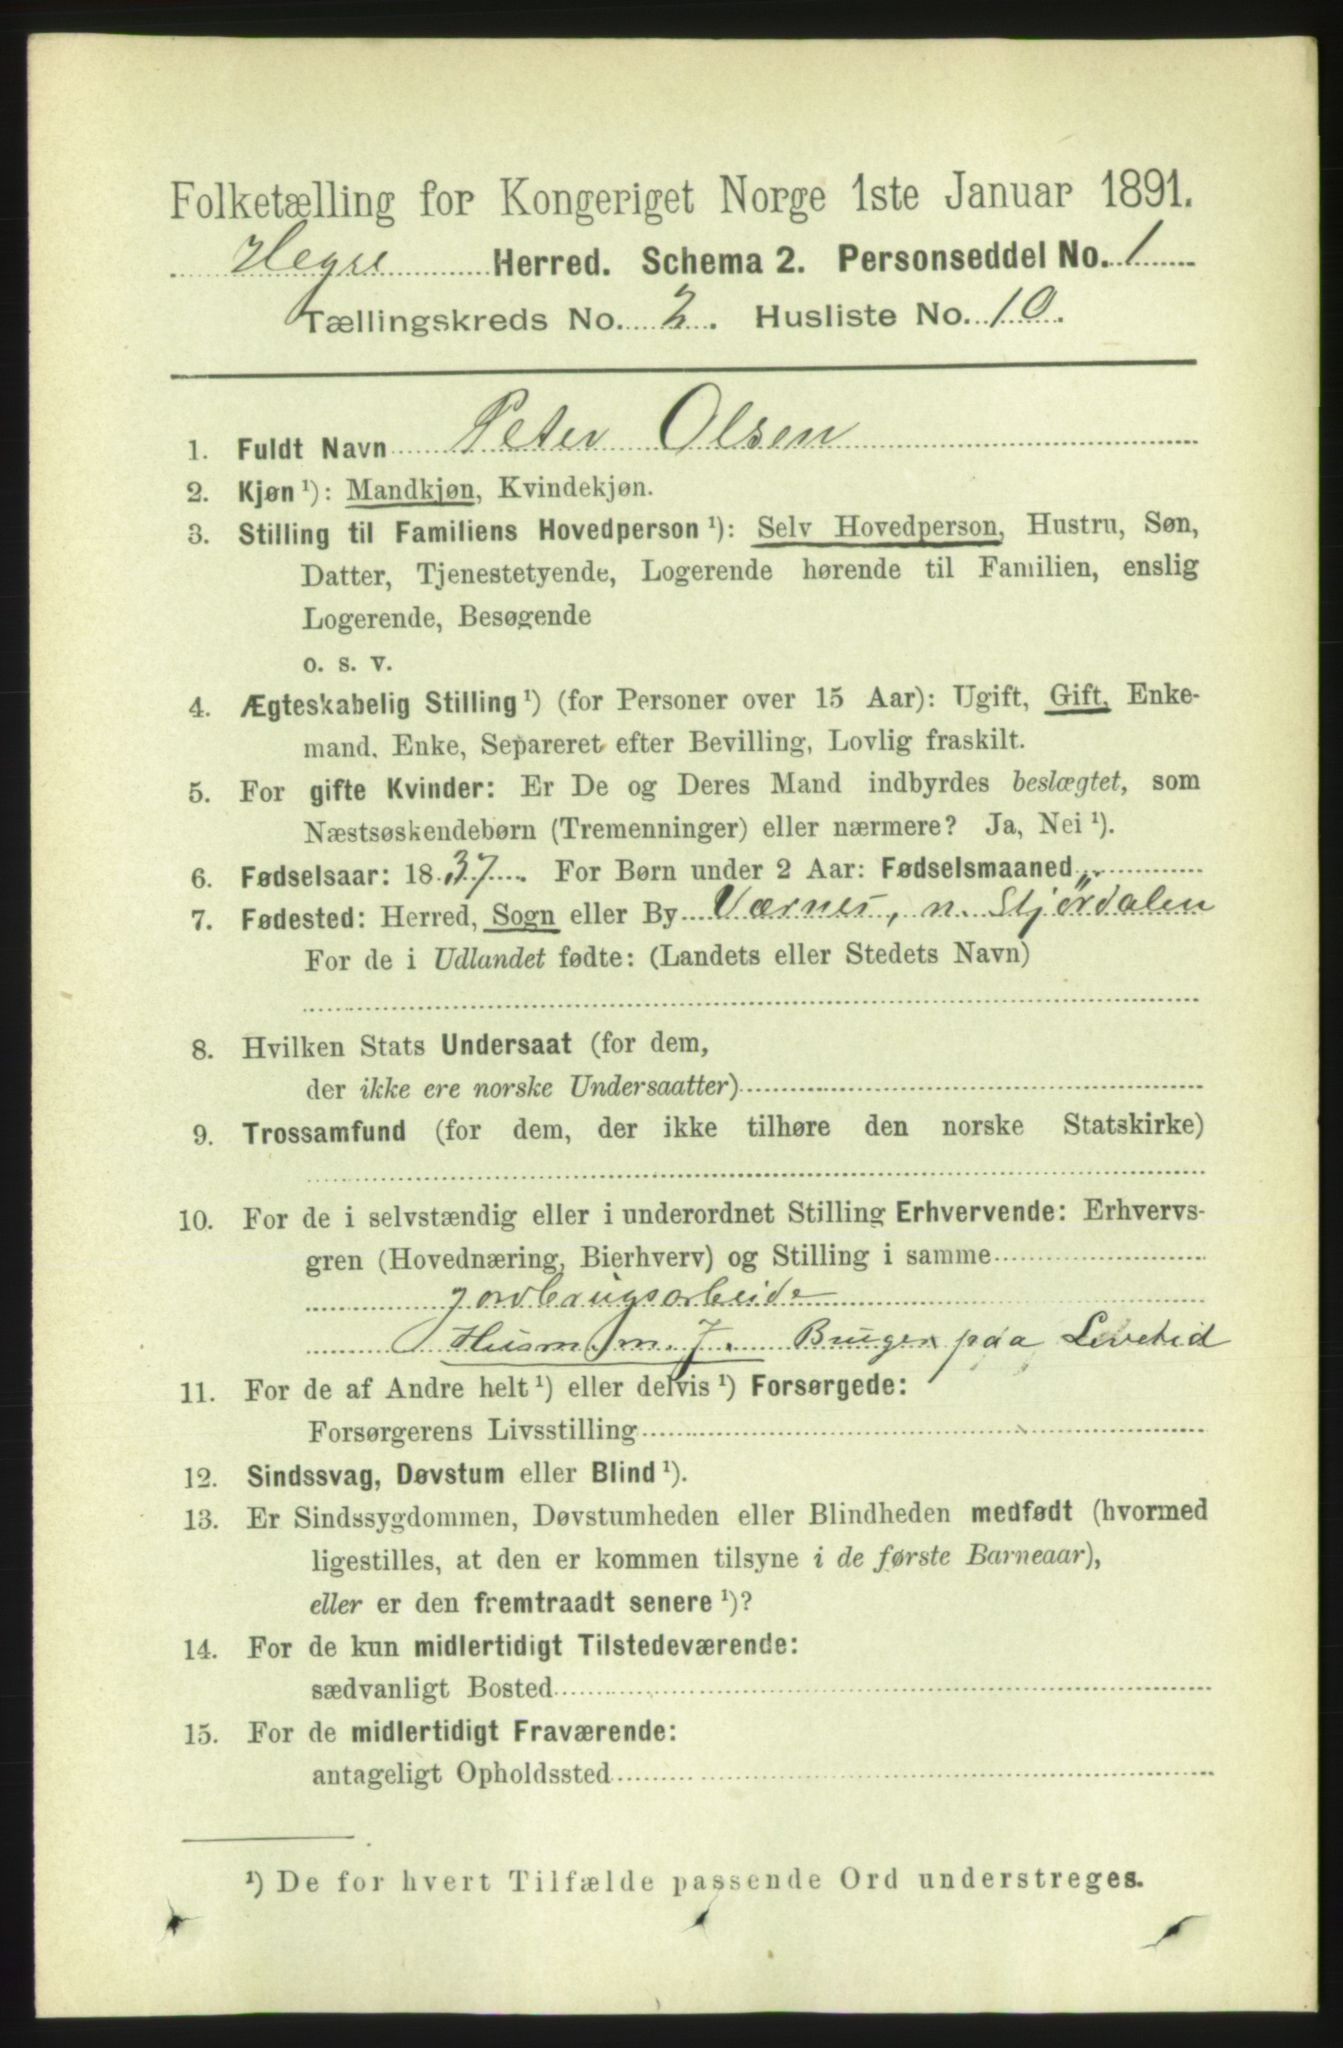 Folketælling for Kongeriget Norge 1ste Januar 1891.
Hegre Herred. Schema 2. Personseddel No. 1
Tællingskreds No. 2. Husliste No. 10.
1. Fuldt Navn Peter Olsen
2. Kjøn ¹): Mandkjøn, Kvindekjøn.
3. Stilling til Familiens Hovedperson ¹): Selv Hovedperson, Hustru, Søn,
Datter, Tjenestetyende, Logerende hørende til Familien, enslig
Logerende, Besøgende
o. s. v.
4. Ægteskabelig Stilling ¹) (for Personer over 15 Aar): Ugift, Gift, Enke-
mand, Enke, Separeret efter Bevilling, Lovlig fraskilt.
5. For gifte Kvinder: Er De og Deres Mand indbyrdes beslægtet, som
Næstsøskendebørn (Tremenninger) eller nærmere? Ja, Nei ¹).
6. Fødselsaar: 1837. For Børn under 2 Aar: Fødselsmaaned
7. Fødested: Herred, Sogn eller By Værnes, n. Stjørdalen
For de i Udlandet fødte: (Landets eller Stedets Navn)
8. Hvilken Stats Undersaat (for dem,
der ikke ere norske Undersaatter)
9. Trossamfund (for dem, der ikke tilhøre den norske Statskirke)
10. For de i selvstændig eller i underordnet Stilling Erhvervende: Erhvervs-
gren (Hovednæring, Bierhverv) og Stilling i samme
Jordbrugsarbeide
Husm. m. J. Bruger paa Livstid
11. For de af Andre helt ¹) eller delvis ¹) Forsørgede:
Forsørgerens Livsstilling
12. Sindssvag, Døvstum eller Blind ¹).
13. Er Sindssygdommen, Døvstumheden eller Blindheden medfødt (hvormed
ligestilles, at den er kommen tilsyne i de første Barneaar),
eller er den fremtraadt senere ¹)?
14. For de kun midlertidigt Tilstedeværende:
sædvanligt Bosted
15. For de midlertidigt Fraværende:
antageligt Opholdssted
¹) De for hvert Tilfælde passende Ord understreges.